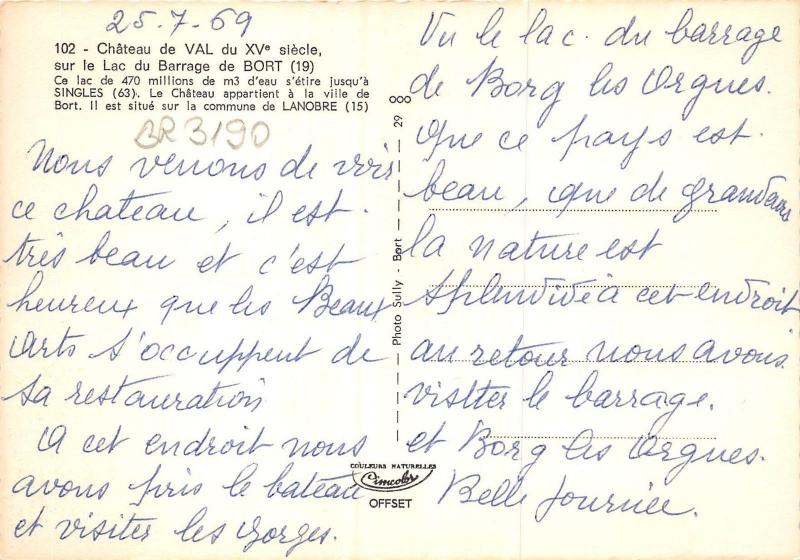 25-7-69
102 - Château de VAL du XVe siècle,
sur le Lac du Barrage de BORT (19)
Ce lac de 470 millions de m3 d'eau s'étire jusqu'à
SINGLES (63). Le Château appartient à la ville de
Bort. Il est situé sur la commune de LANOBRE (15)
BR3190
Nous venons de voir
ce chateau, il est
très beau et c'est
heureux que les Beaux
arts s'occuppent de
sa restauration
A cet endroit nous
avons pris le bateau
et visiter les gorges.
Photo Sully - Bort — 29 000
COULEURS NATURELLES
Cimcolor
OFFSET
Vu le lac du barrage
de Borg les Orgues.
que ce pays est
beau, que de grandeurs
la nature est
splendide à cet endroit
au retour nous avons
visiter le barrage.
et Borg les Orgues.
Belle Journée.